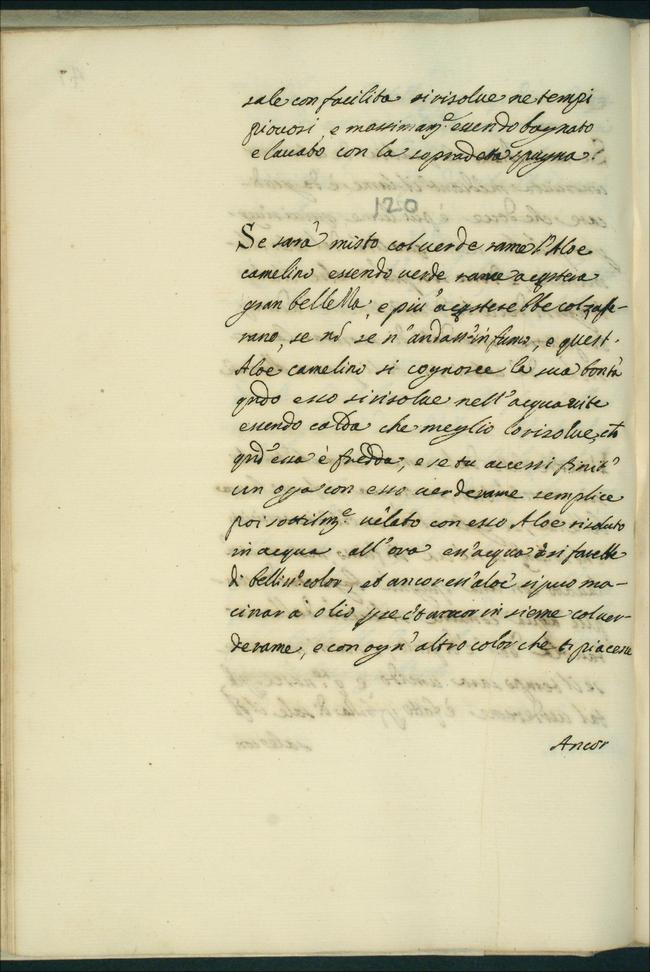 sale con facilita si risolue ne tempi
piouosi, e massimam.e essendo bagnato
e lauato con la sopradetta spugna.
120
Se sarà misto col uerde rame l'Aloe
camelino essendo uerde rame acqstera
gran bellezza, e piu acqsterebbe col zaffe-
rano, se nō se n'andass in fumo, e quest
Aloe camelino si cognosce la sua bontà
qndo esso si risolue nell'acqua uite
essendo calda che meglio lo risolue, ch
qnd' essa è fredda, e se tu auessi finit'
un opa con esso uerderame semplice
poi sottilm.e uelato con esso Aloe risoluto
in acqua all'ora ess' acqua si farebbe
di belliss.o color, et ancor ess' aloe si puo ma-
cinar à olio p se et ancor in sieme col uer-
derame, e con ogn' altro color che ti piacesse
Ancor